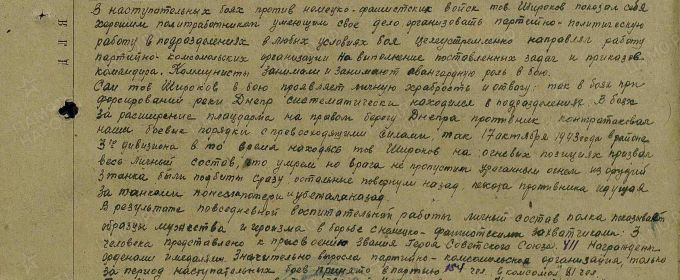 В наступательных боях против немецко-фашистских войск тов Широков показал себя
хорошим политработником умеющим свое дело, организовать партийно-политическую
работу в подразделениях в любых условиях боя целеустремленно направлял работу
партийно-комсомольских организаций на выполнение поставленных задач и приказов
командира. Коммунисты занимали и занимают авангардную роль в бою.
Сам тов Широков в бою проявляет личную храбрость и отвагу: так в боях при
форсировании реки Днепр систематически находился в подразделениях. В боях
за расширение плацдарма на правом берегу Днепра противник контратаковал
наши боевые порядки с превосходящими силами, так 17 октября 1943 года в районе
3го дивизиона в то время находясь тов Широков на огневых позициях призвал
весь личный состав, что умрем но врага не пропустим ураганным огнем из орудий
3 танка были подбиты сразу остальные повернули назад, пехота противника идущая
за танками понесла потери и убежала назад.
В результате повседневной воспитательной работы личный состав полка показывает
образцы мужества и героизма в борьбе с немецко-фашистскими захватчиками: 3
человека представлено к присвоению звания Героя Советского Союза. 411 награждены
орденами и медалями. Значительно выросла партийно-комсомольская организация, только
за период наступательных боев принято в партию 154 чел. в комсомол 81 чел.